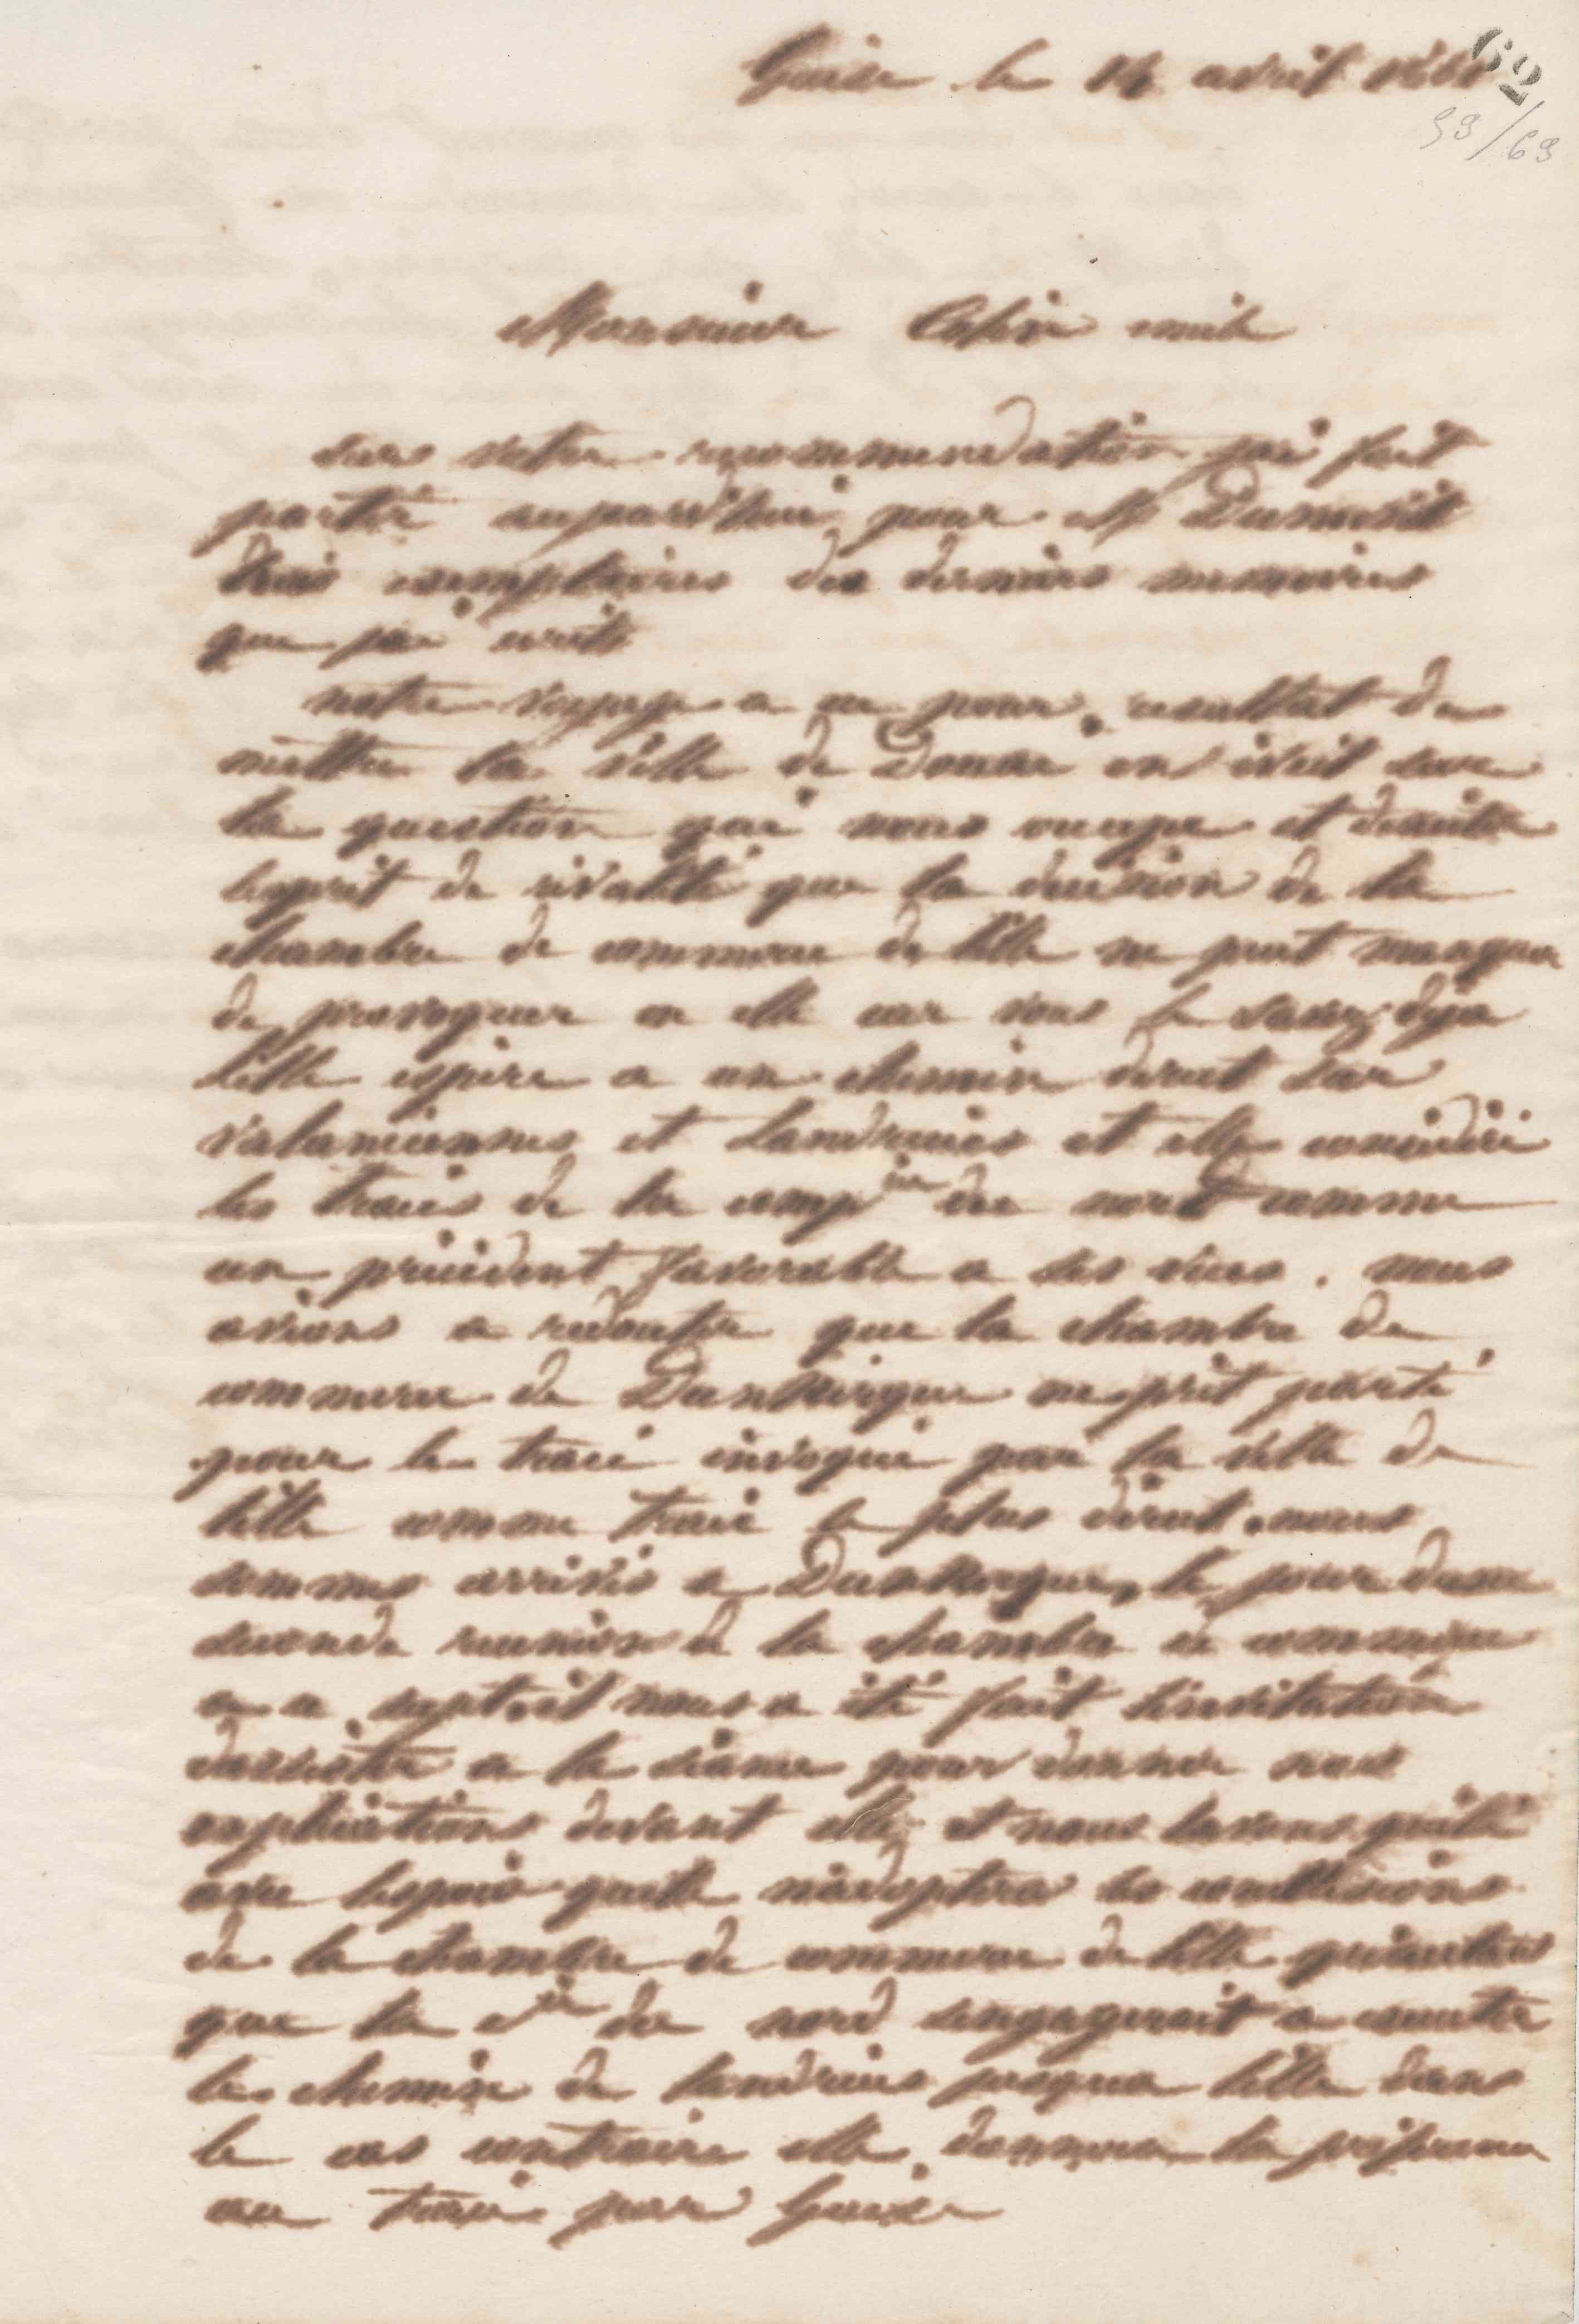 Guise le 14 avril 186
62
59/69
Monsieur
sur votre recommandation j'ai fait
partir aujourd'hui pour Mr Dumenil
trois exemplaires des derniers memoires
que jai ecrits
notre voyage a eu pour resultat de
mettre la ville de Douai en eveil sur
la question qui nous occupe et
lesprit de rivalité que la decision de la
chambre de commerce de lille ne peut manquer
de provoquer en elle car vous le savez deja
lille espère a un chemin direct sur
valenciennes et Landrecies et elle considère
les tracés de la compie du nord comme
un précédent favorable a ses vues. nous
avions a redouter que la chambre de
commerce de Dunkerque ne prit parti
pour le tracé invoqué par la ville de
lille comme tracé le plus direct. nous
sommes arrivés a Dunkerque, le jour dune
seconde reunion de la chambre de commerce
a sept nous a été fait linvitation
dassister a la séance pour donner nos
explications devant elle et nous lavons quitté
avec lespoir quelle nadoptera les conclusions
de la chambre de commerce de lille quautant
que la Cie du nord sengagerait a executer
le chemin de landrecies jusqua lille dans
le cas contraire elle donnera la preference
au tracé par Guise